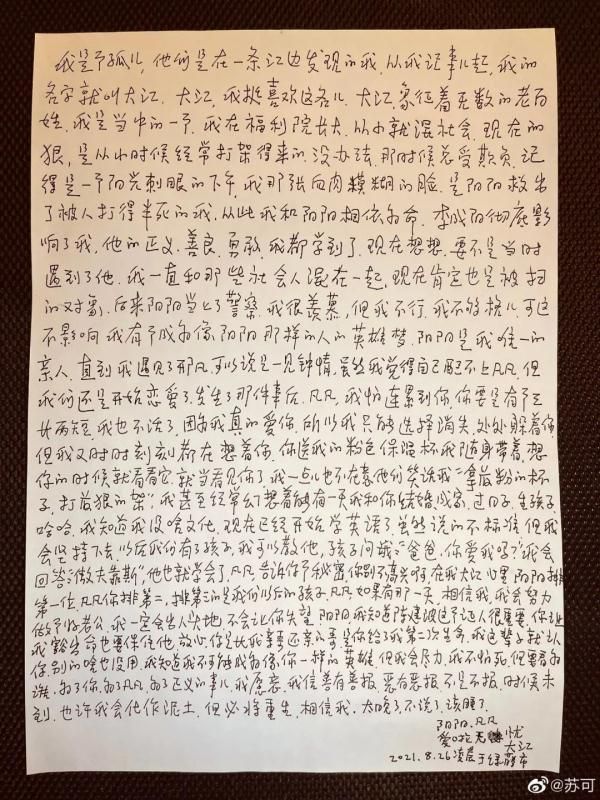 我是个孤儿，他们是在一条江边发现的我，从我记事儿起，我的
名字就叫大江．大江，我挺喜欢这名儿．大江，象征着无数的老百
姓．我是当中的一个．我在福利院长大．从小就混社会．现在的
狠，是从小时候经常打架得来的．没办法，那时候总受欺负．记
得是一个阳光刺眼的下午，我那张血肉模糊的脸．是阳阳救出
了被人打得半死的我．从此我和阳阳相依为命．李成阳彻底影
响了我，他的正义．善良．勇敢，我都学到了．现在想想．要不是当时
遇到了他．我一直和那些社会人混在一起，现在肯定也是被扫
的对象．后来阳阳当上了警察，我很羡慕，但我不行．我不够格儿．可这
不影响我有个成为像阳阳那样的人的英雄梦．阳阳是我唯一的
亲人．直到我遇见了那凡．可以说是一见钟情，虽然我觉得自己配不上凡凡．但
我们还是开始恋爱了．发生了那件事后．凡凡，我怕连累到你，你要是有个三
长两短．我也不活了．因为我真的爱你．所以我只能选择消失．处处躲着你，
但我又时时刻刻都在想着你．你送我的粉色保温杯我随身带着，想
你的时候就看看它．就当看见你了．我一点儿也不在意他们笑话我“拿最粉的杯
子，打最狠的架”．我甚至经常幻想着能有一天我和你结婚，成家，过日子，生孩子
哈哈．我知道我没啥文化．现在已经开始学英语了．虽然说的不标准．但我
会坚持下去．以后我们有了孩子．我可以教他，孩子问我：“爸爸．你爱我吗？”我会
回答：“做夫靠斯”．他也就学会了．凡凡．告诉你个秘密，你别不高兴啊．在我大江心里．阳阳排
第一位．凡凡你排第二，排第三的是我们以后的孩子．凡凡．如果有那一天．相信我．我会努力
做个好老公．我一定会出人头地．不会让你失望．阳阳．我知道陈建波这个证人很重要，你让
我豁出命也要保住他．放心．你是比我亲哥还亲的哥．是你给了我第二次生命，我这辈子就认
你．别的啥也没用．我知道我不可能成为像你一样的英雄．但我会尽力．我不怕死．但要看为
谁．为了你．为了凡凡．为了正义的事儿，我愿意．我信善有善报．恶有恶报．不是不报．时候未
到．也许我会化作泥土．但必将重生．相信我．太晚了．不说了，该睡了．
阳阳．凡凡
大江
2021.8.26凌晨于绿藤市
@苏可